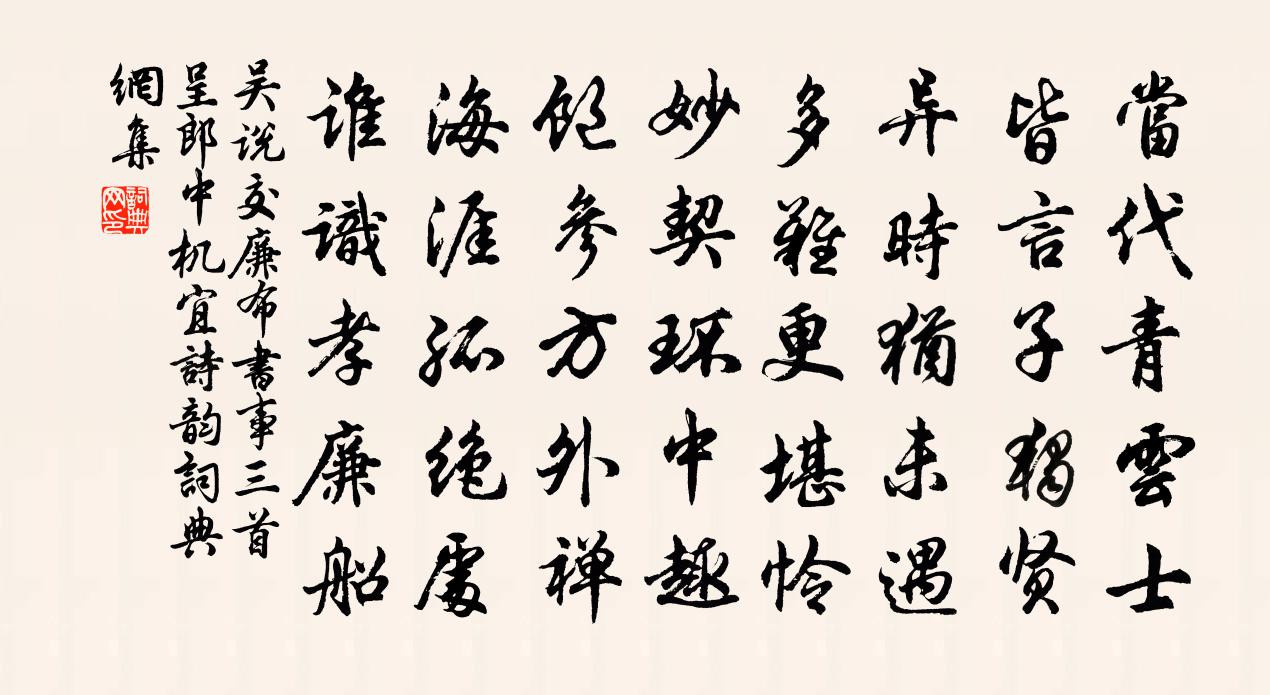 當代青雲士
皆言子獨贤
异時猶未遇
多難更堪怜
妙契环中趣
飽参方外禅
海涯孤绝處
谁識孝廉船
吴说交廉布書事三首
呈郎中机宜詩韵詞典
網集
詞典網印